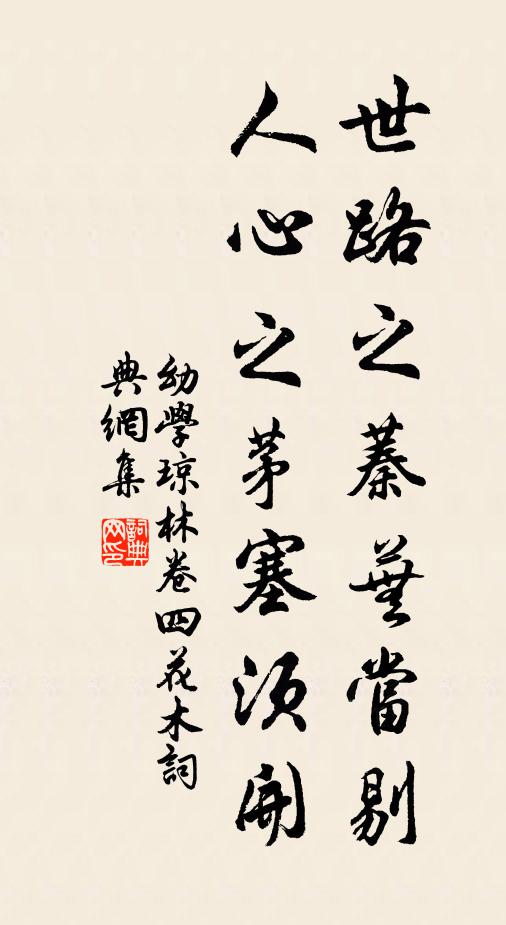 世路之蓁蕪當剔
人心之茅塞須開
幼學琼林卷四花木詞
典網集
詞典网印